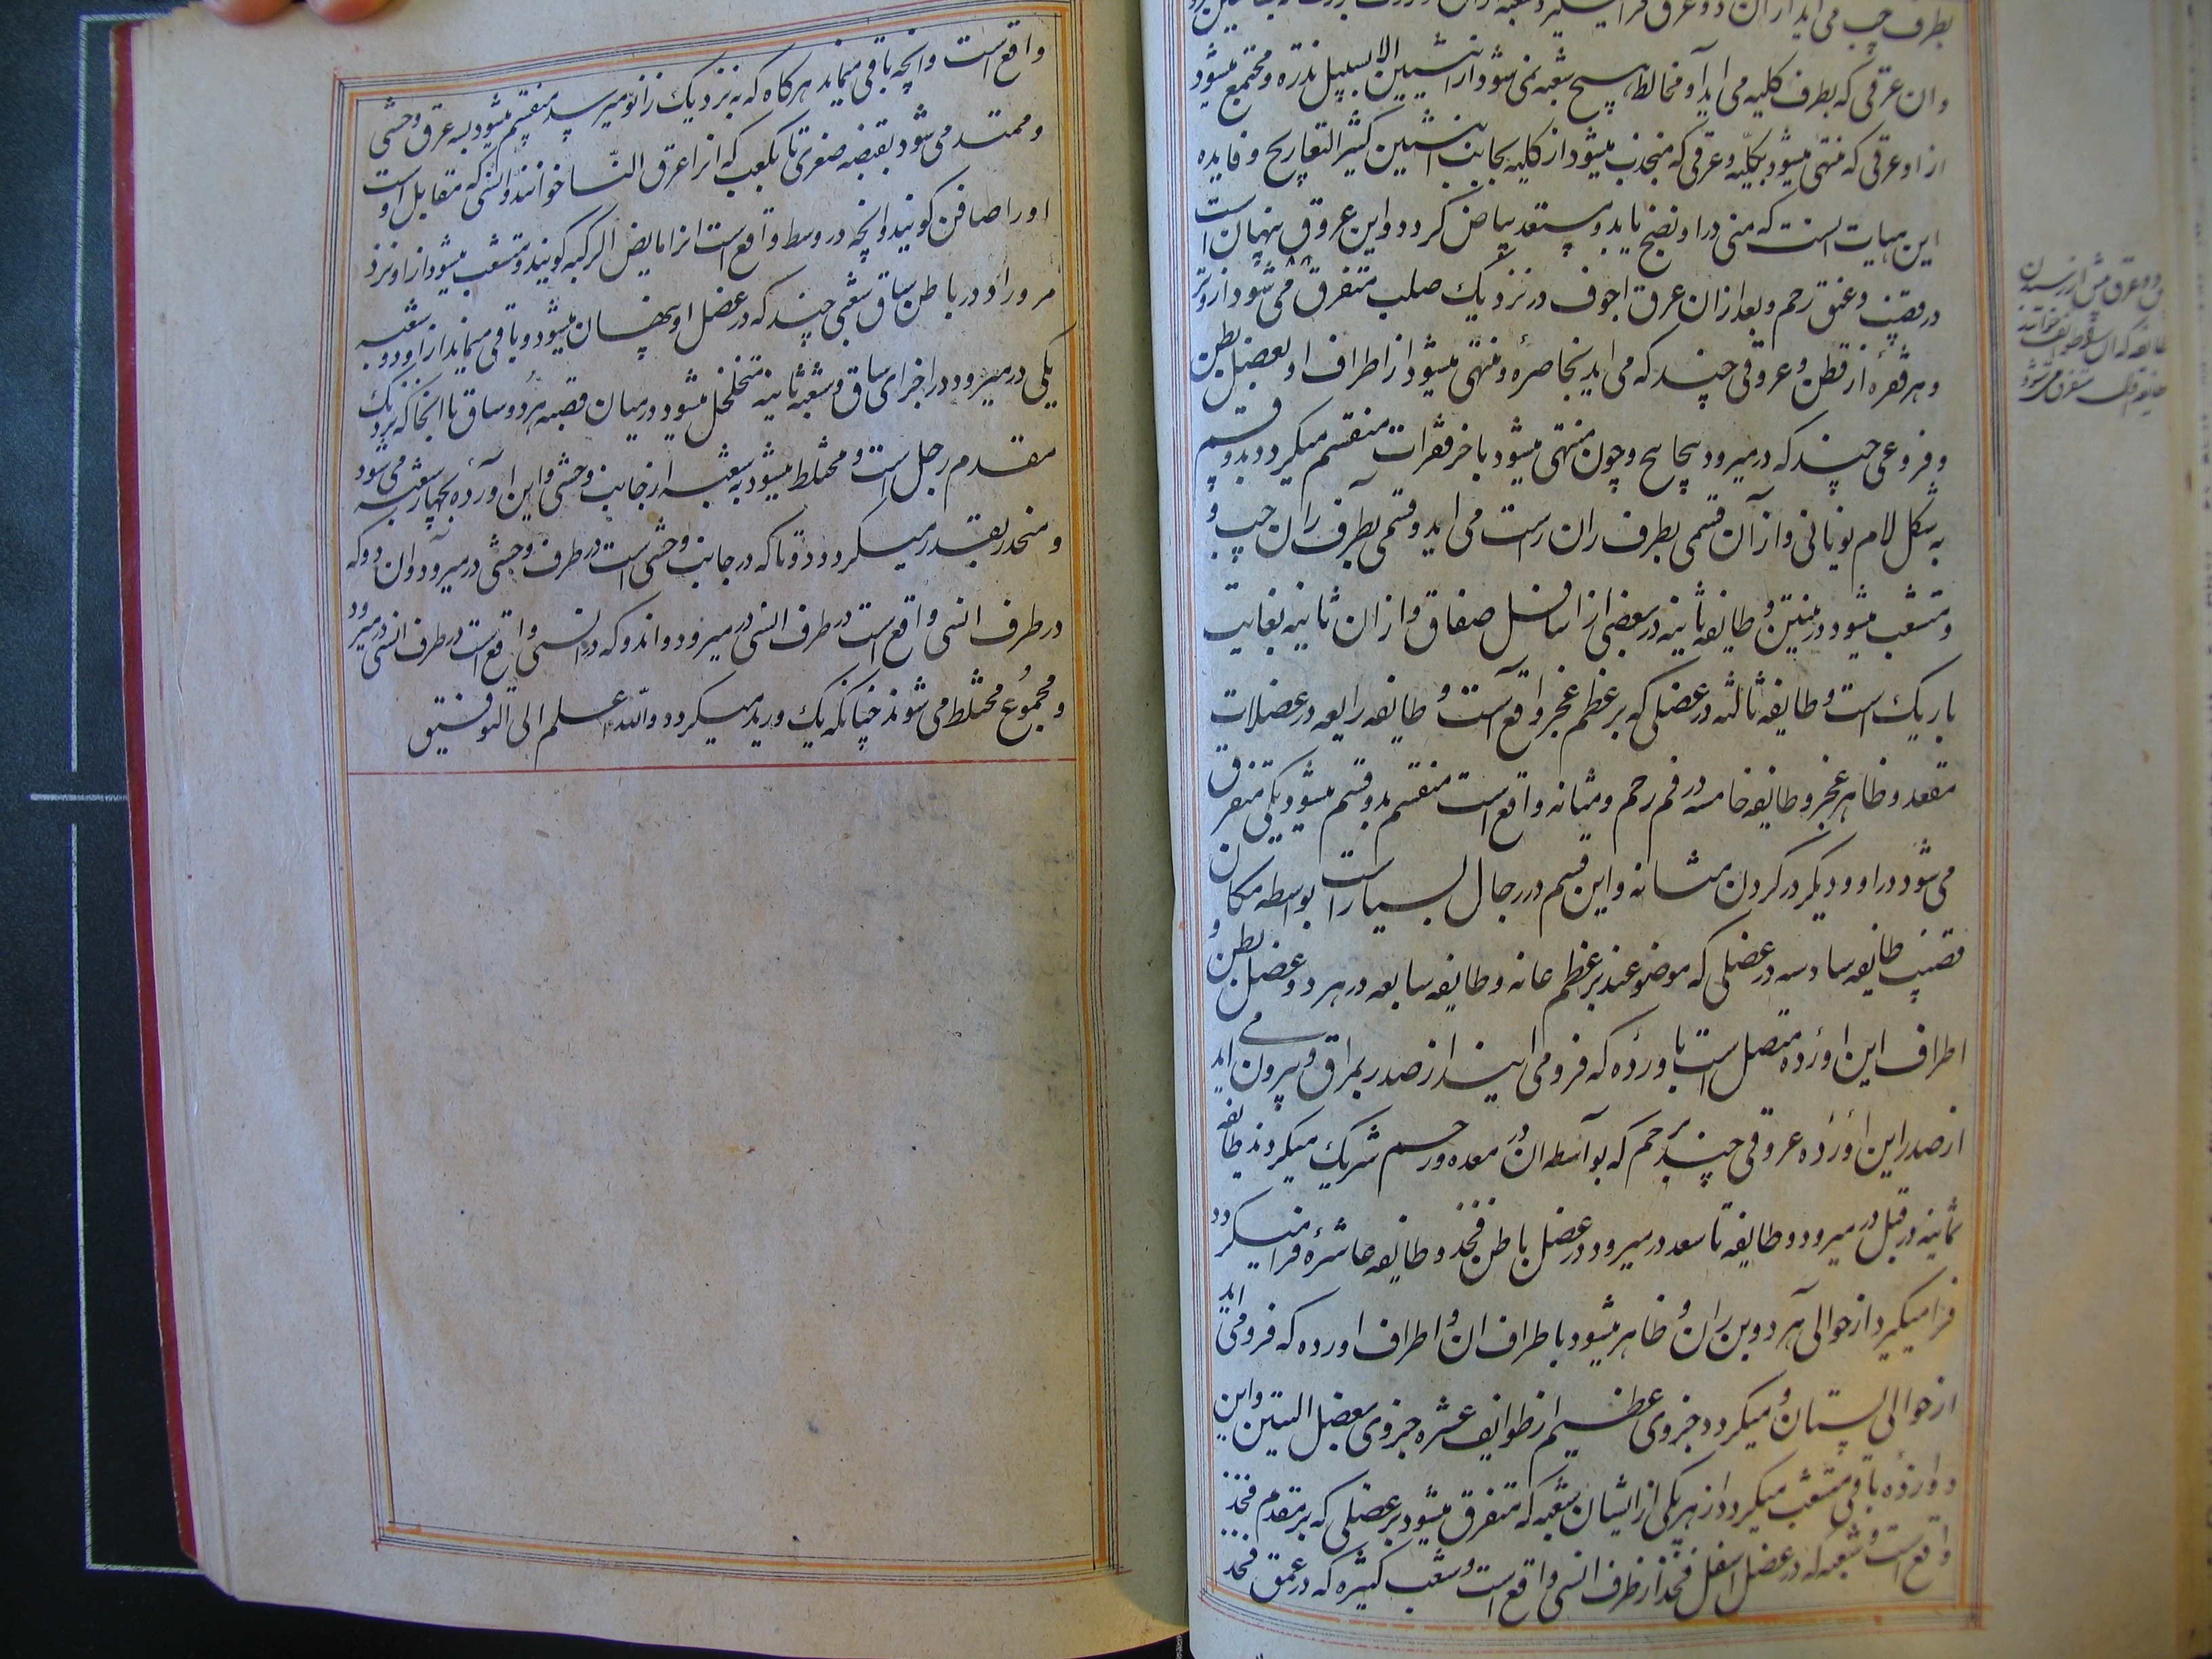 وان عرقی که بطرف کلیه می اید آو مخالط هیچ شعبه نمی شود از انثیین الا بسبیل ندره و مجتمع میشود
از او عرقی که منتهی میشود بکلیه و عرقی که منجذب میشود از کلیه بجانب انثیین کثیر التعاریج و فایده
این هیات انست که منی در او نضج یابد و مستعد بیاض گردد و این عروق پنهان است
در قضیب و عنق رحم و بعد ازان عرق اجوف در نزدیک صلب متفرق می شود از و تر
و هر فقره از قطن و عروقی چند که می اید بخاصره و منتهی میشود از اطراف او بعضل بطن
و فروعی چند که در میرود بنخاع و چون منتهی میشود باخر فقرات منقسم میکردد بدو قسم
به شکل لام یونانی و از آن قسمی بطرف ران راست می اید و قسمی بطرف ران چپ و
متشعب میشود در متنین و طایفه ثانیه در بعضی از اسافل صفاق و ازان ثانیه بغایت
باریک است و طایفه ثالثه در عضلی که بر عظم عجز واقع است و طایفه رابعه در عضلات
مقعد و ظاهر عجز و طایفه خامسه در فم رحم و مثانه واقع است منقسم بدو قسم میشود یکی متفرق
می شود در او و دیگر در کردن مثانه و این قسم در رجال بسیار است بواسطه مکان
قضیب طایفه سادسه در عضلی که موضوعند بر عظم عانه و طایفه سابعه در هر دو عضل بطن و
اطراف این اورده متصل است با ورده که فرو می ایند از صدر بمراق و بیرون می اید
از صدر این اورده عروقی چند بر حم که بواسطه ان در معده و رحم شریک میکردند طایفه
ثمانیه در قبل در میرود و طایفه تاسعه در میرود در عضل باطن فخذ و طایفه عاشره فرا میکردد
فرا میکیرد از حوالی هر دو بن ران و ظاهر میشود با طراف ان و اطراف اورده که فرو می اید
از حوالی پستان و میکردد جزوی عظیم از طوایف عشره جزوی بعضل الیتین و این
و اورده باقی متشعب میکردد از هر یکی از ایشان شعبه که متفرق میشود بر عضلی که بر مقدم فخذ
واقع است و شعبه که در عضل اسفل فخذ از طرف انسی واقع است و شعب کثیره که در عمق فخذ
واقع است وانچه باقی میماند هرکاه که به نزدیک زانو میرسد منقسم میشود بسه عرق وحشی
و ممتد می شود بقصبه صغری تا بکعب که انرا عرق النسا خوانند و انسی که مقابل اوست
او را صافن کویند وانچه در وسط واقع است انرا مابض الرکبه کویند و متشعب میشود از او نزد
مرور او در باطن ساق شعبی چند که در عضل او پنهان میشود و باقی میماند از او دو شعبه
یکی در میرود در اجزای ساق و شعبه ثانیه متخلخل میشود در میان قصبه هر دو ساق تا انجا که نزدیک
مقدم رجل است و مختلط میشود به شعبه از جانب وحشی و این اورده بچهار شعبه می شود
و منحدر بقدر میکردد دو تا که در جانب وحشی است در طرف وحشی در میرود و ان دو که
در طرف انسی واقع است در طرف انسی در میرود و اندو که در انسی واقع است در طرف انسی در میرود
و مجموع مختلط می شوند چنانکه یک ورید میکردد والله اعلم الی التوفیق